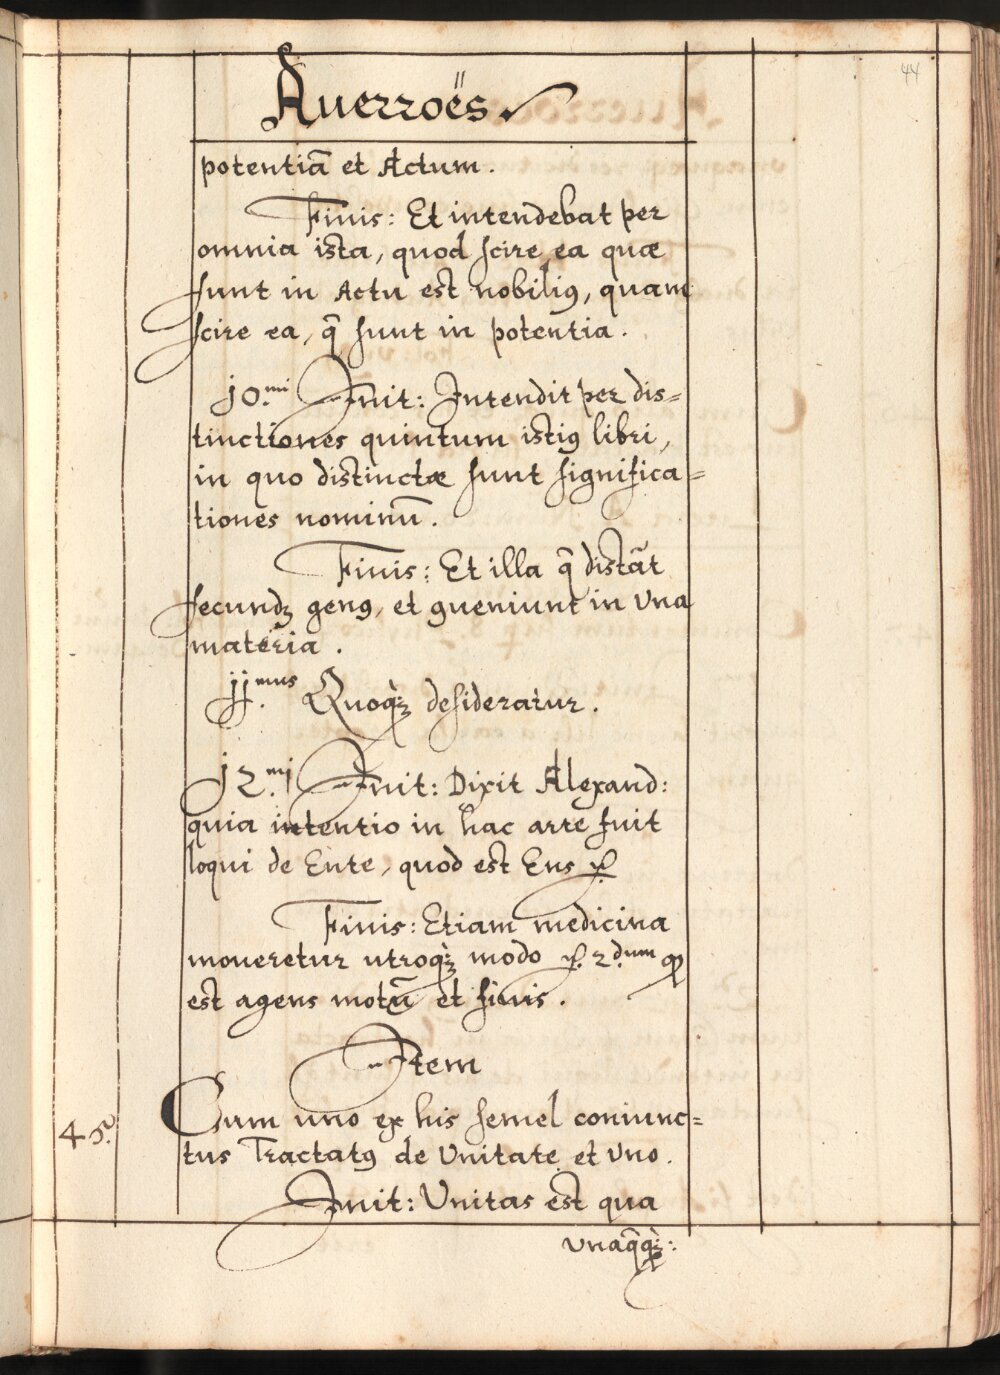 44
Auerroës
potentiã et Actum.
Finis: Et intendebat per
omnia ista, quod scire ea quæ
sunt in Actu est nobiliꝰ, quam
scire ea, q̃ sunt in potentia.
jo.mi Init: Intendit per dis=
tinctiones quintum istiꝰ libri,
in quo distinctæ sunt significa=
tiones nominũ.
Finis: Et illa q̃ distãt
secundꝫ genꝰ, et ꝯueniunt in una
materia.
jj.mus Quoqꝫ desideratur.
j2.mi Init: Dixit Alexand:
quia intentio in hac arte fuit
loqui de Ente, quod est Ens
Finis: Etiam medicina
moueretur utroqꝫ modo 2.dum
est agens motũ et finis.
Item
4
Cum uno ex his semel coniunc=
tus Tractatꝰ de Unitate et uno.
Init: Unitas est qua
unaq̃qꝫ: